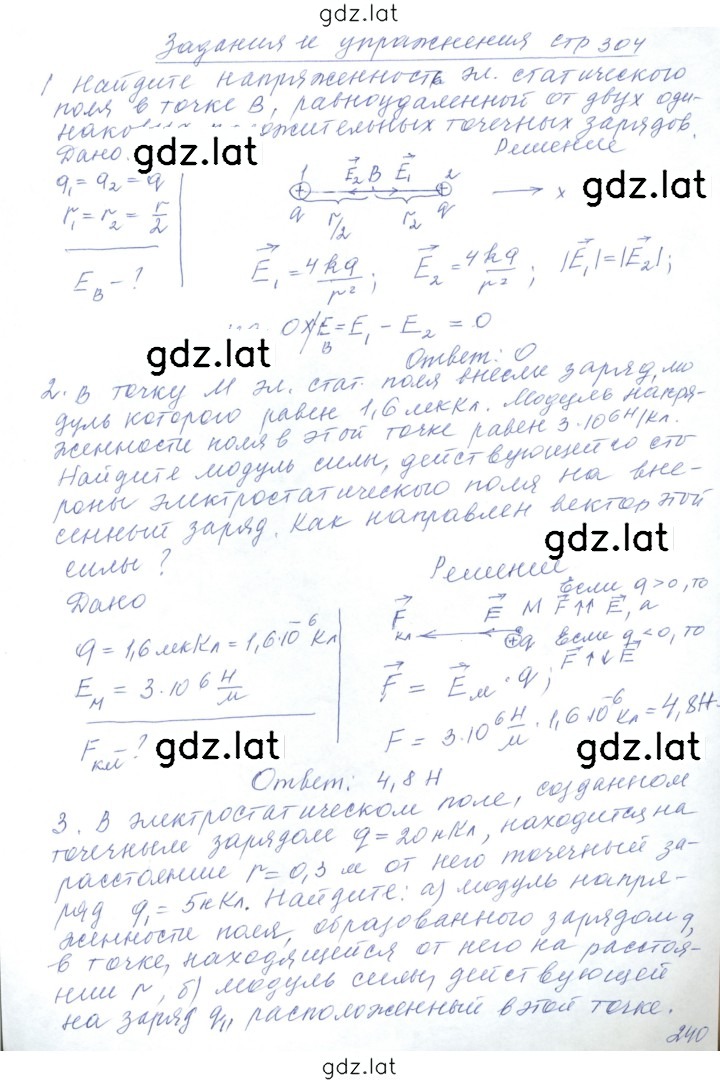 gdz.lat
Задания и упражнения стр 304
1 Найдите напряженность эл. статического
поля в точке В, равноудаленный от двух оди-
наковых положительных точечных зарядов.
Дано. gdz.lat Решение gdz.lat
q₁ = q₂ = q
r₁ = r₂ = r/2
E_B - ?
1 E⃗₂ B E⃗₁ 2 x
q r/2 r₂ q
E⃗₁ = 4kq/r²; E⃗₂ = 4kq/r²; |E⃗₁| = |E⃗₂|;
OX/ E_B = E₁ - E₂ = 0
gdz.lat Ответ: 0
2. В точку М эл. стат. поля внесли заряд, мо
дуль которого равен 1,6 мкКл. Модуль напря-
женности поля в этой точке равен 3·10⁶ Н/кл.
Найдите модуль силы, действующей со сто
роны электростатического поля на вне-
сенный заряд. Как направлен вектор этой
силы? gdz.lat
Дано Решение
q = 1,6 мкКл = 1,6·10⁻⁶ Кл
E_м = 3·10⁶ Н/м
F_кл - ? gdz.lat
F⃗_кл E⃗ М q Если q > 0, то
F⃗ ↑↑ E⃗, а
Если q < 0, то
F⃗ ↑↓ E⃗
F⃗ = E⃗_м · q;
F = 3·10⁶ Н/м · 1,6·10⁻⁶ Кл = 4,8 Н.
gdz.lat
Ответ: 4,8 Н
3. В электростатическом поле, созданном
точечным зарядом q = 20 нКл, находится на
расстояние r = 0,3 м от него точечный за-
ряд q₁ = 5нКл. Найдите: а) модуль напря-
женности поля, образованного зарядом q,
в точке, находящейся от него на расстоя-
нии r, б) модуль силы, действующей
на заряд q₁, расположенный в этой точке.
240
gdz.lat